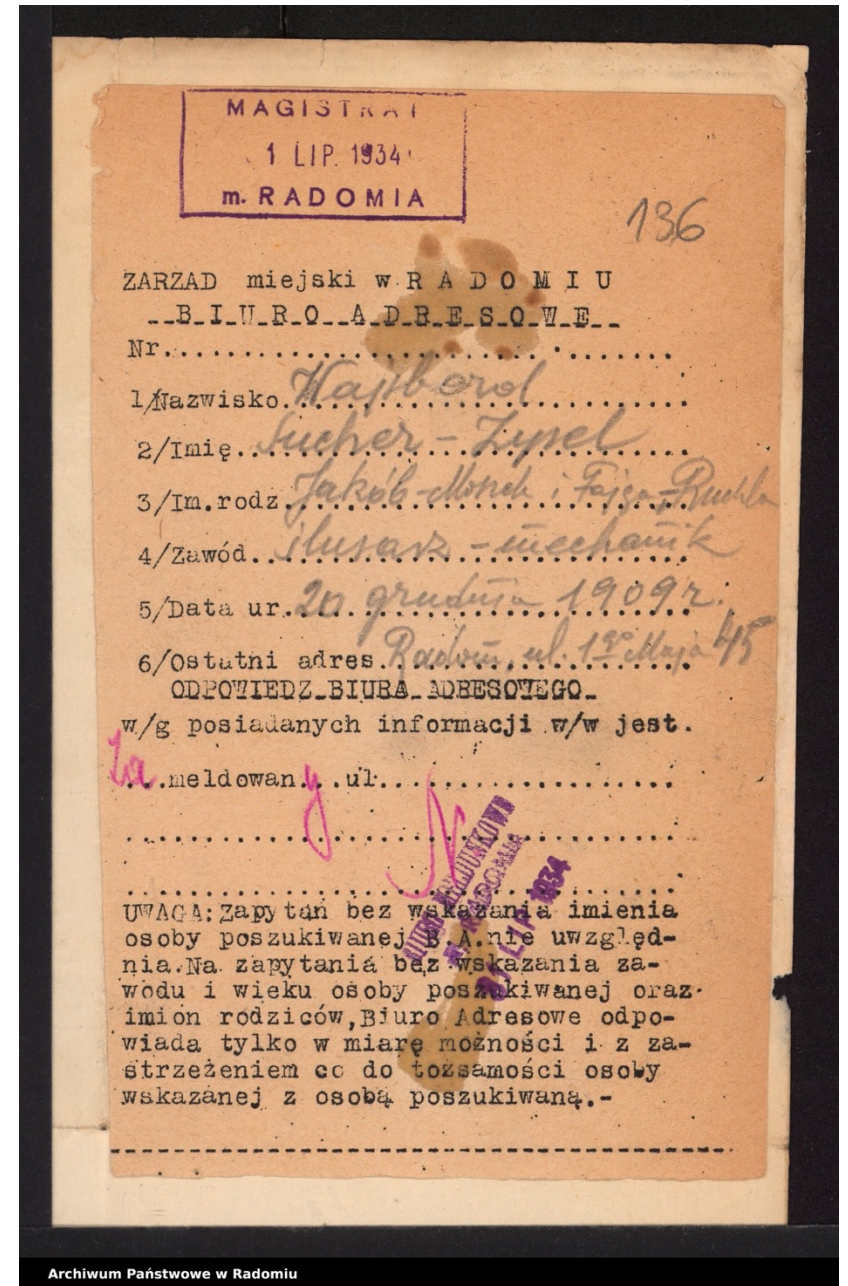 MAGISTRAT
1 LIP. 1934
m. RADOMIA
136
ZARZAD miejski w RADOMIU
BIURO ADRESOWE
Nr.
1/Nazwisko. Wajsbord
2/Imię. Sucher-Zysel
3/Im.rodz. Jakób-Mosek i Fajga-Ruchla
4/Zawód. ślusarz-mechanik
5/Data ur. 20 grudnia 1909 r.
6/Ostatni adres. Radom, ul. 1go Maja 45
ODPOWIEDZ BIURA ADRESOWEGO
w/g posiadanych informacji w/w jest.
Za meldowan y ul.
N
BIURO MELDUNKOWE
m. RADOMIA
LIP 1934
UWAGA: Zapytań bez wskazania imienia
osoby poszukiwanej B.A.nie uwzględ-
nia.Na zapytania bez wskazania za-
wodu i wieku osoby poszukiwanej oraz
imion rodziców,Biuro Adresowe odpo-
wiada tylko w miarę możności i z za-
strzeżeniem co do tożsamości osoby
wskazanej z osobą poszukiwaną.-
Archiwum Państwowe w Radomiu